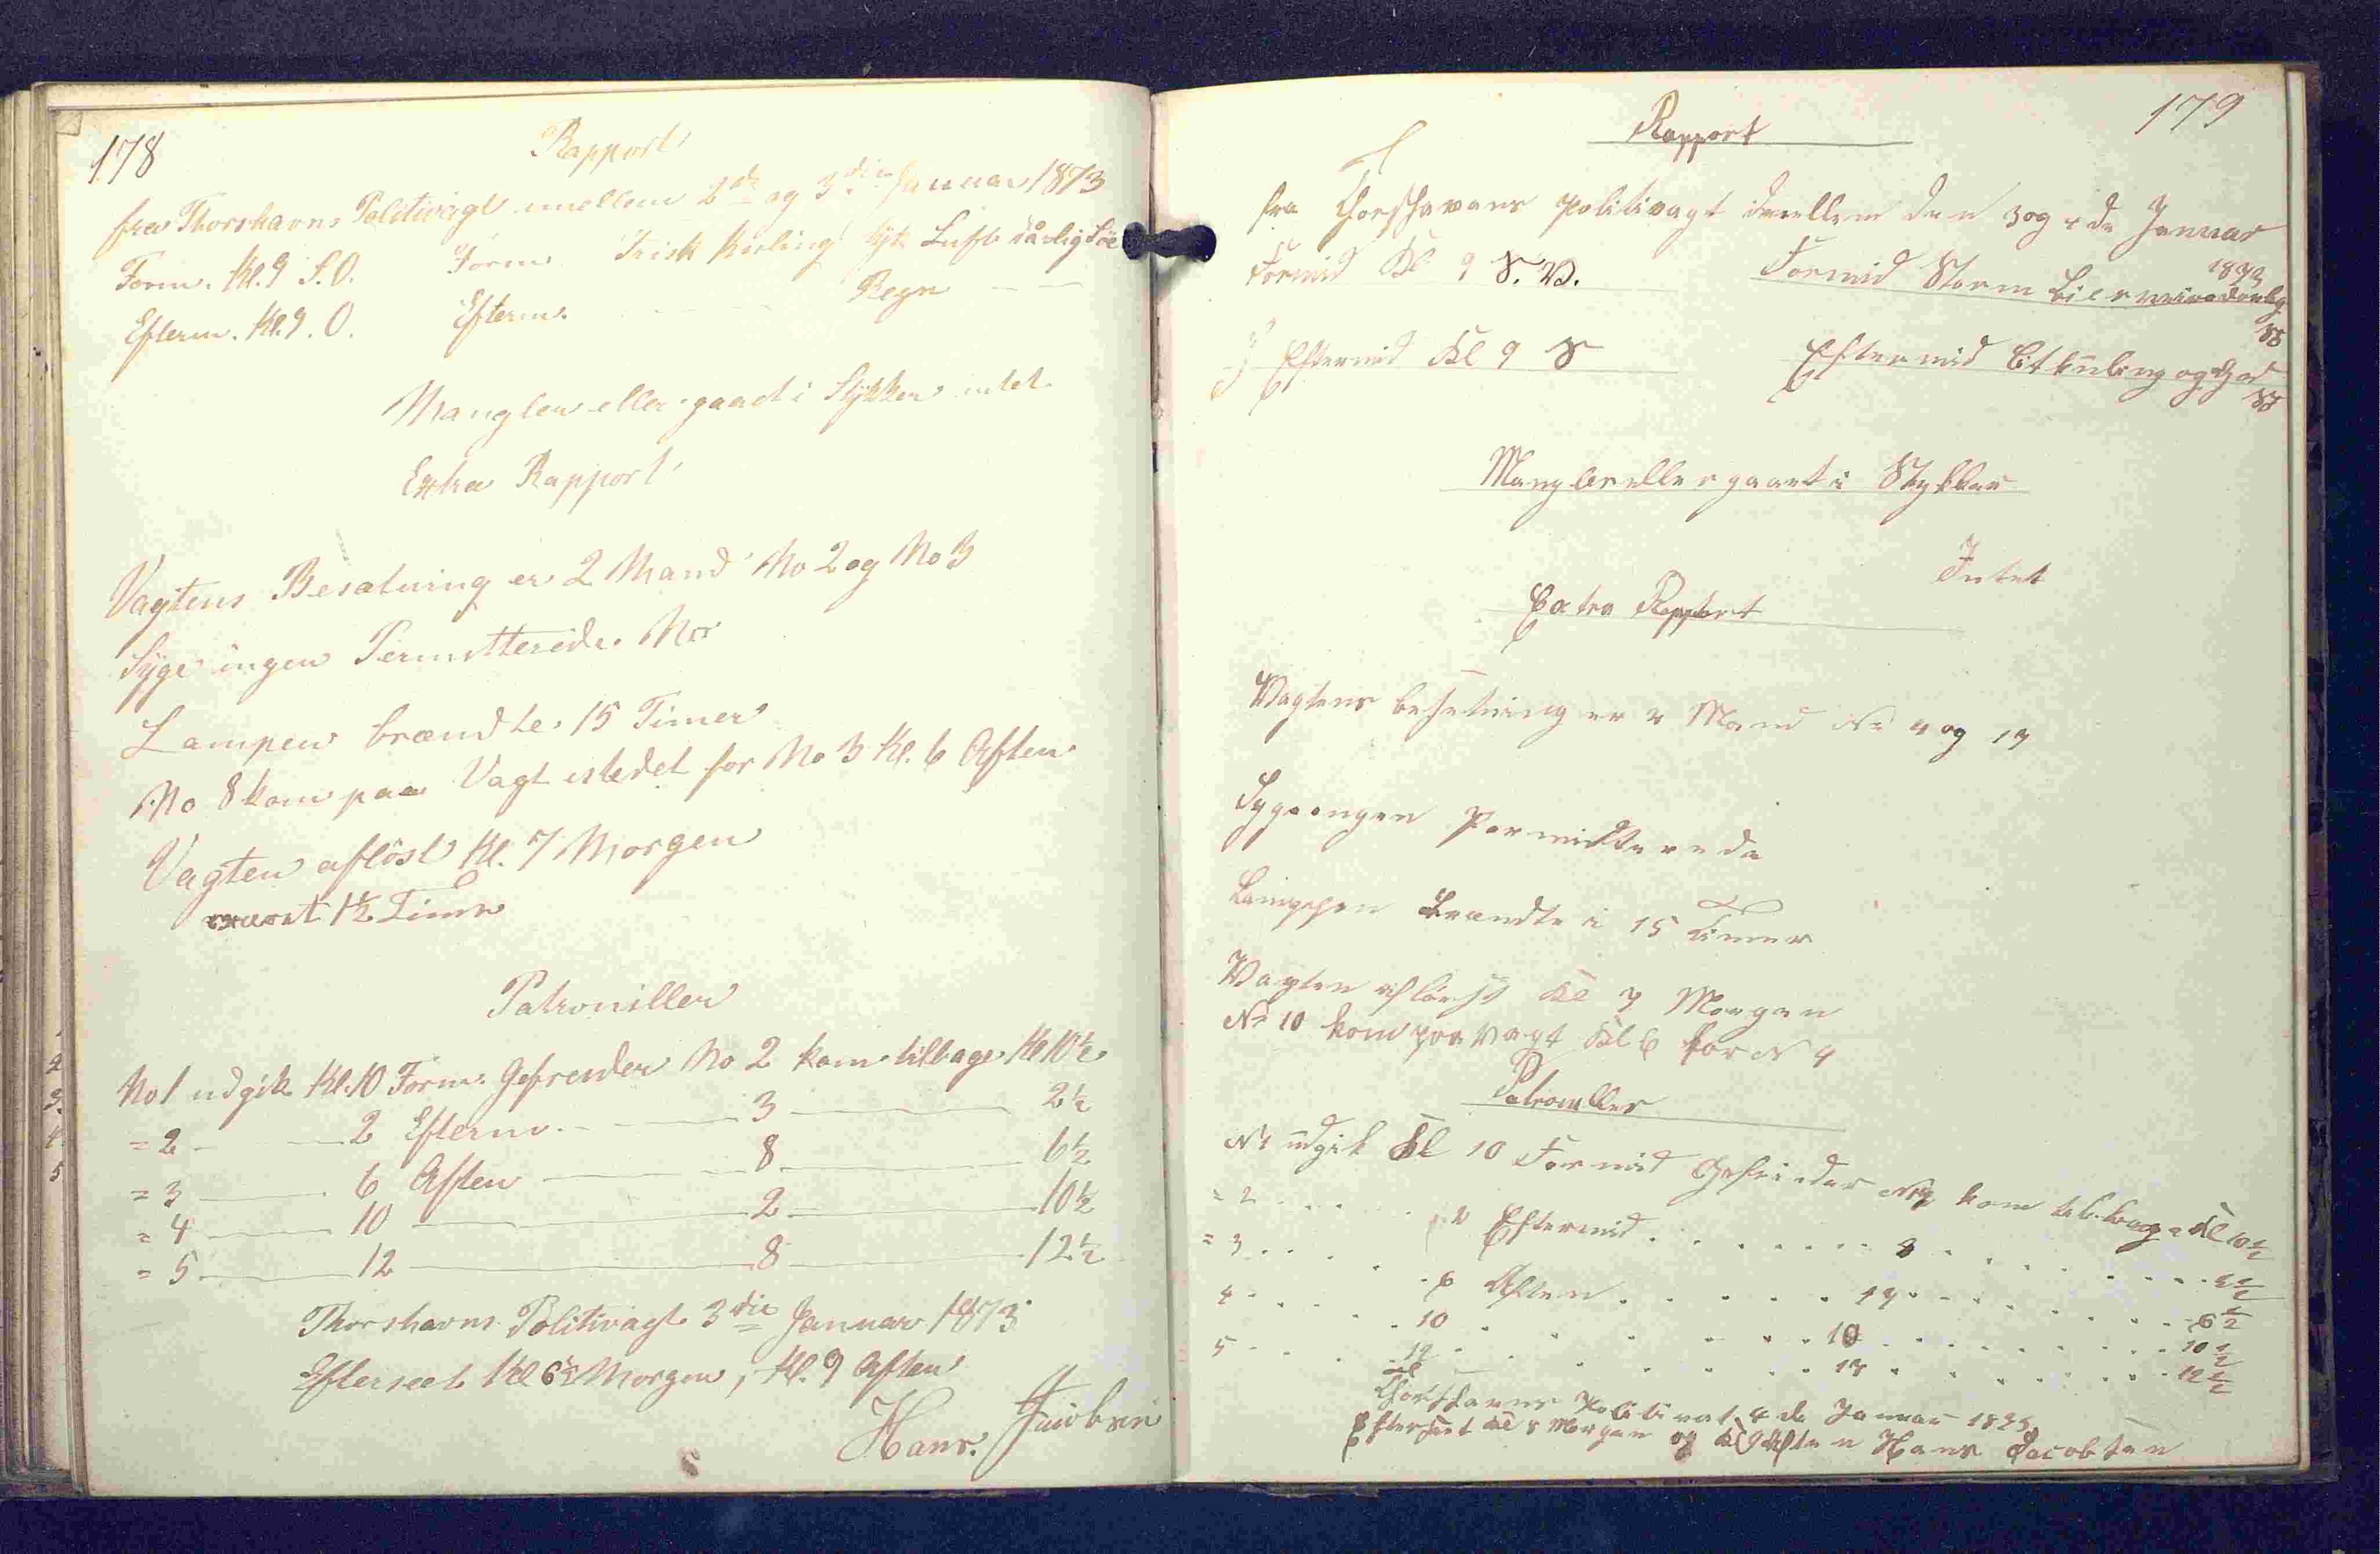 178
Rapport
fra Thorshavns Politivagt imellem 2de og 3die Januar 1873
Form. Kl. 9 S.O. Form. Frisk Kuling tyk Luft daarlig Söe
Efterm. Kl. 9. O. Efterm. Regn
Mangler eller gaaet i Stykker intet
Extra Rapport
Vagtens Besætning er 2 Mand No 2 og No 3
Syge ingen Permitterede No
Lampen brændte 15 Timer
No 8 kom paa Vagt istedet for No 3 Kl. 6 Aften
Vagten aflöst Kl. 7 Morgen
1½ Time
Patrouiller
No 1 udgik Kl. 10 Form. Gefreider No 2 kom tilbage Kl 10½
= 2 2 Efterm. 3 2½
= 3 6 Aften 8 6½
= 4 10 2 10½
= 5 12 8 12½
Thorshavns Politivagt 3die Januar 1873
Efterseet Kl 6½ Morgen, Kl. 9 Aften
Hans. Jacobsen
179
Rapport
fra Thorshavns Politivagt imellem den 3 og 4de Januar
1873
Formid Kl 9 S. V. Formid Storm
Eftermid Kl 9 S Eftermid Kuling og
Mangler eller gaaet i Stykker
Intet
Extra Rapport
Vagtens besetning er 2 Mand No 4 og 17
Syge ingen Permitterede
Lamppen brændte i 15 Timer
Vagten aflöest Kl 7 Morgen
No 10 kom paa Vagt Kl 6 for N 4
Patrouller
N 1 udgik Kl 10 Formid Gefreider kom tilbage Kl 10½
= 2 2 Eftermid 2½
= 3 6 Aften 17 6½
4 10 10 10½
5 12 17 12½
Thorshavns Politivat 4de Januar
Efterseet Kl 8 Morgen og Kl 9 Aften Hans Jacobsen